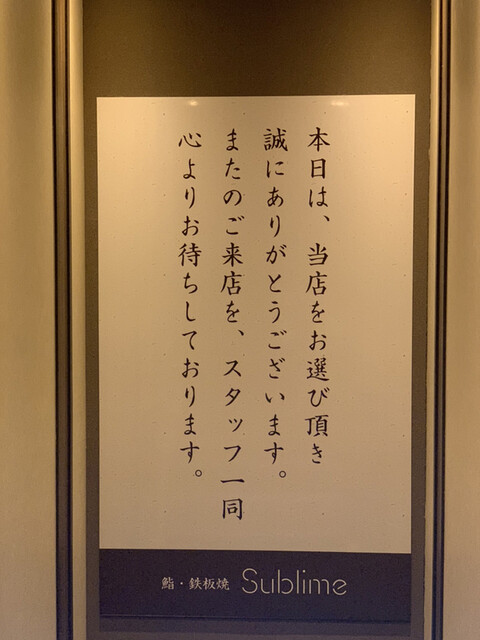 本日は、当店をお選び頂き
誠にありがとうございます。
またのご来店を、スタッフ一同
心よりお待ちしております。
鮨・鉄板焼 Sublime